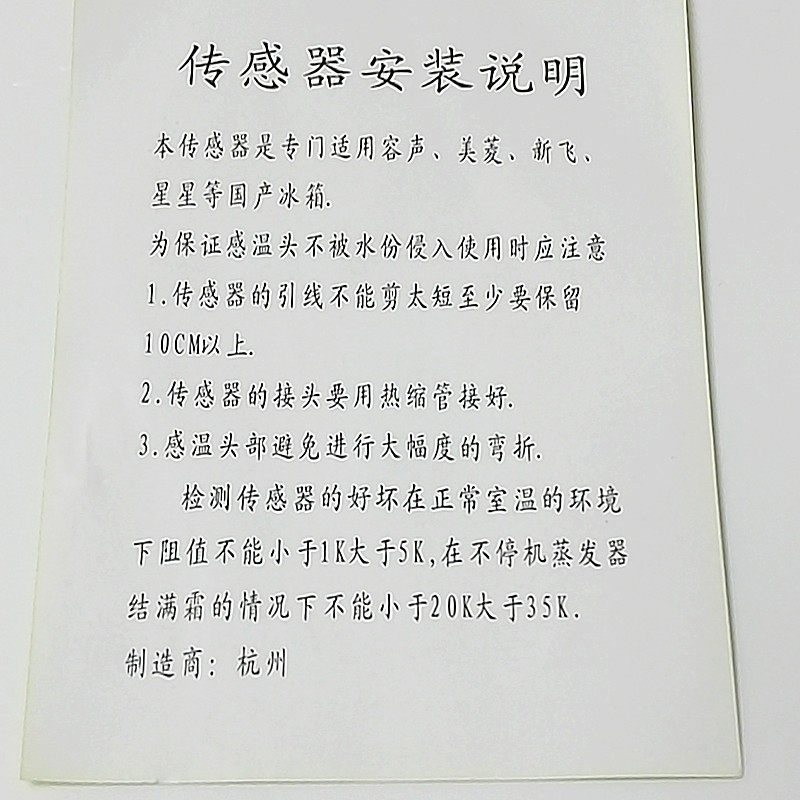 传感器安装说明
本传感器是专门适用容声、美菱、新飞、
星星等国产冰箱.
为保证感温头不被水份侵入使用时应注意
1.传感器的引线不能剪太短至少要保留
10CM以上.
2.传感器的接头要用热缩管接好.
3.感温头部避免进行大幅度的弯折.
检测传感器的好坏在正常室温的环境
下阻值不能小于1K大于5K,在不停机蒸发器
结满霜的情况下不能小于20K大于35K.
制造商：杭州